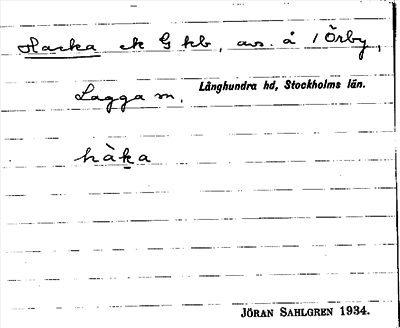 Hacka ek G kb, avs. å 1 Örby,
Lagga sn, Långhundra hd, Stockholms län.
hàka
JÖRAN SAHLGREN 1934.